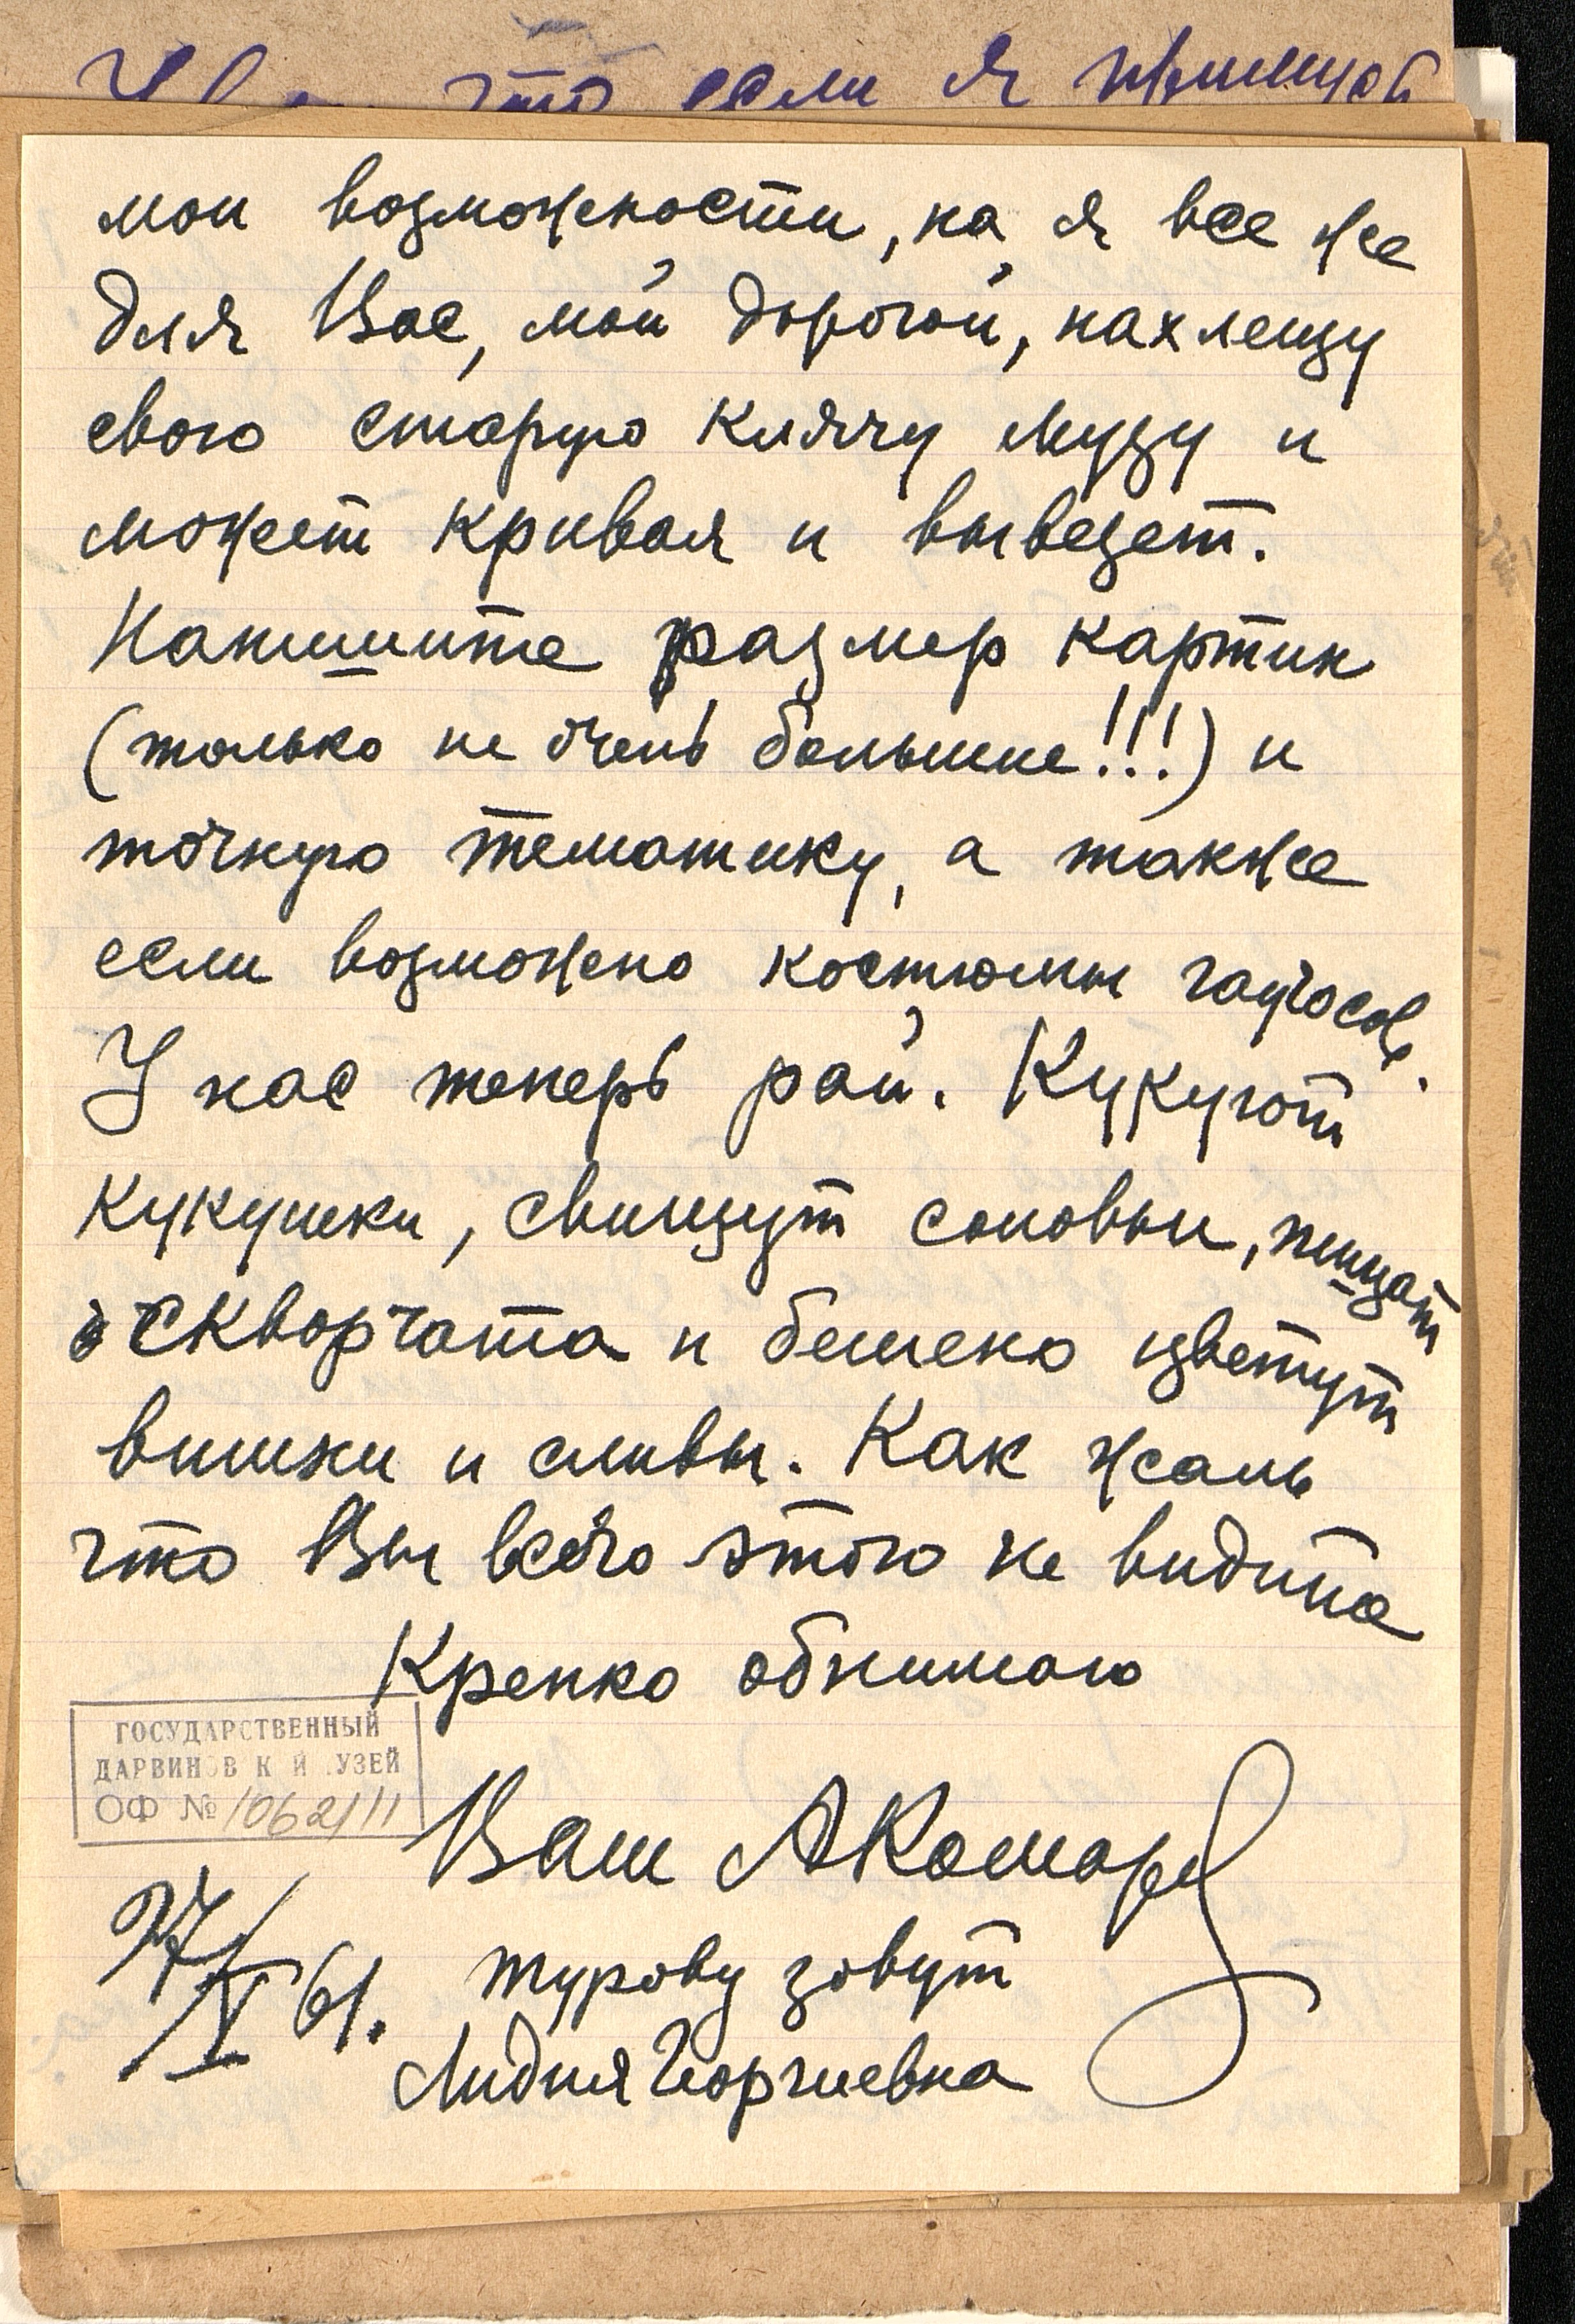 что если я
мои возможности, но я все же
для Вас, мой дорогой, нахлещу
свою старую клячу Музу и
может кривая и вывезет.
Напишите размер картин
(только не очень большие!!!) и
точную тематику, а также
если возможно костюмы гаучосов.
У нас теперь рай. Кукуют
кукушки, свищут соловьи, пищат
скворчата и бешено цветут
вишни и сливы. Как жаль
что Вы всего этого не видите
Крепко обнимаю
ГОСУДАРСТВЕННЫЙ
ДАРВИНОВ К Й УЗЕЙ
ОФ № 10621/11
Ваш АКомаров
27/V 61. Турову зовут
Лидия Георгиевна